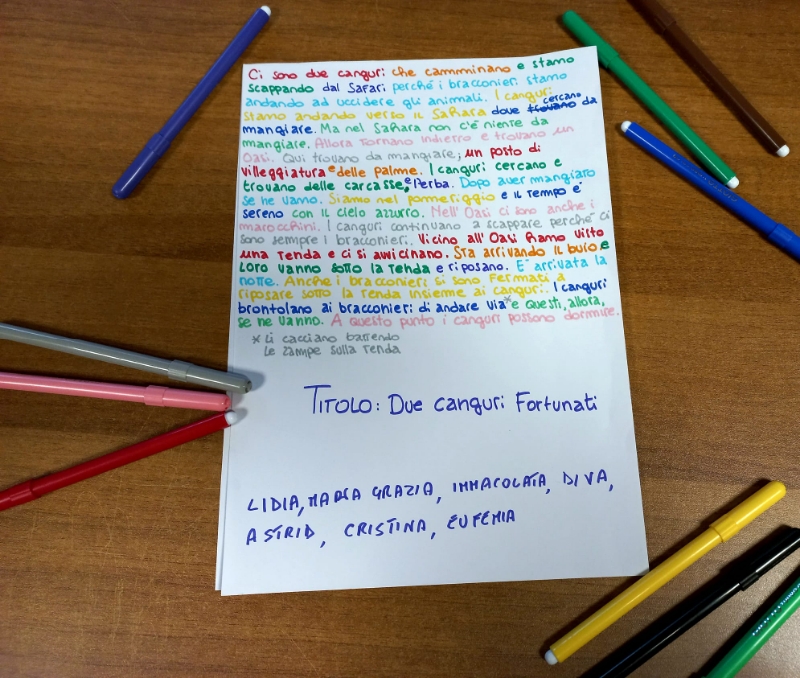 Ci sono due canguri che camminano e stamo
scappando dal Safari perché i bracconieri stamo
andando ad uccidere gli animali. I canguri
stamo andando verso il Sahara dove trovano cercano da
mangiare. Ma nel Sahara non c'é niente da
mangiare. Allora tornano indietro e trovano un
Oasi. Qui trovano da mangiare; un posto di
villeggiatura e delle palme. I canguri cercano e
trovano delle carcasse, e l'erba. Dopo aver mangiato
se ne vanno. Siamo nel pomeriggio e il tempo é
sereno con il cielo azzurro. Nell'Oasi ci sono anche i
marocchini. I canguri continuano a scappare perché ci
sono sempre i bracconieri. Vicino all'Oasi hamo visto
una tenda e ci si avvicinano. Sta arrivando il buio e
loro vanno sotto la tenda e riposano. E' arrivata la
notte. Anche i bracconieri si sono fermati a
riposare sotto la tenda insieme ai canguri. I canguri
brontolano ai bracconieri di andare via* e questi, allora,
se ne vanno. A questo punto i canguri possono dormire.
* Li cacciano battendo
le zampe sulla tenda
TITOLO: Due canguri Fortunati
LIDIA, MARIA GRAZIA, IMMACOLATA, DIVA,
ASTRID, CRISTINA, EUFEMIA